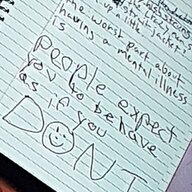 up a little
the worst part about
having a mental illness
is
people expect
you to behave
as if you
DON'T